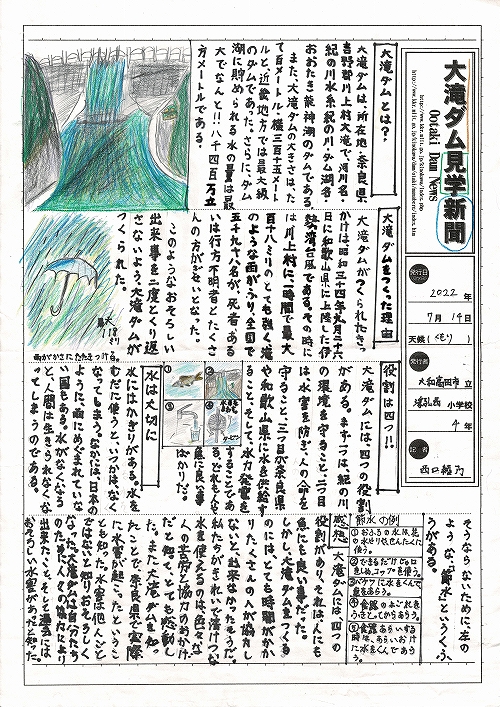 大滝ダム見学新聞
Ootaki Dam News
発行日
2022年
7月14日
天候(くもり)
発行所
大和高田市立
小学校
4年
記者
大滝ダムとは?
大滝ダムは、所在地・奈良県
吉野郡川上村大滝で、河川名・
紀の川水系紀の川、ダム湖名・
おおたき龍神湖のダムである。
また、大滝ダムの大きさは、たっ
て百メートル・横三百十五メート
ルと、近畿地方では最大級
のダムであった。さらに、ダム
湖に貯められる水の量は最
大でなんと!!八千四百万立
方メートルである。
大滝ダムをつくった理由
大滝ダムがつくられたきっ
かけは、昭和三十四年九月二十六
日に和歌山県に上陸した伊
勢湾台風である。その時に
は川上村に一時間で最大
百十八ミリのとても強く滝
のような雨がふり、全国で
五千九十八名が、死者ある
いは行方不明者とたくさ
んの方がぎせいとなった。
このようなおそろしい
出来事を二度とくり返
さないよう大滝ダムが
つくられた。
最大118ミリ
雨がかさにたたきつける。
役割は四つ!!
大滝ダムには、四つの役割
がある。まず一つは、紀の川
の環境を守ること、二つ目
は水害を防ぎ、人の命を
守ること、三つ目が奈良県
や和歌山県に水を供給す
ること、そして、水力発電を
することであ
る。どれも人に
急に良い事
ばかりだ。
①
②
③
④
水は大切に
水にはかぎりがある。水を
むだに使うと、いつかは、なく
なってしまう。なかには、日本の
ように、雨にめぐまれていな
い国もある。水がなくなる
と、人間は生きられなくな
ってしまうのである。
そうならないために、左の
ような、「節水」というくふ
うがある。
節水の例
①おふろの水は花
の水やりやせんたくに
使う。
②できるだけじゃ口
を
コップを使う。
③バケツに水をくんで
車をあらう。
④食器のよごれを
ふきとってからあらう。
⑤食器あらいする
時は、あらいおけ
に水をくんであら
う。
感想
大滝ダムには四つの
役割があり、それは、人にも
急にも良い事だった。
しかし、大滝ダムをつくる
のには、とても時間がかか
りたくさんの人が協力し
ないと、出来なかったそうだ。
私たちがきれいで清けつな
水を使えるのは、色々な
人の苦労と協力のおかげ
だと知って、とても感動し
た。また、大滝ダムを知っ
たことで、奈良県で実際
に水害が起こったというこ
とも知った。水害は他人ごと
ではないと知りおそろしく
なった。大滝ダムは自分たち
のために人々の協力により
出来たこと、そして過去には
おそろしい水害があったと知った。